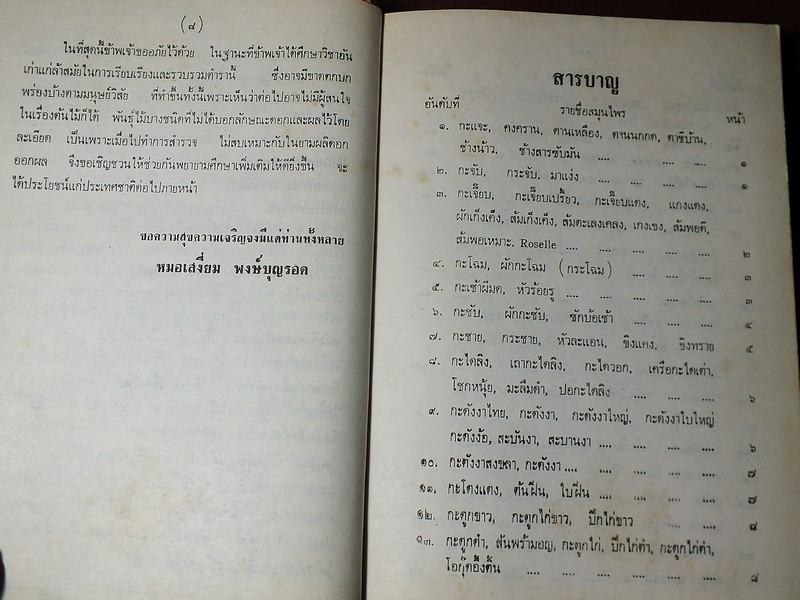 (๘)
ในที่สุดนี้ข้าพเจ้าขออภัยไว้ด้วย ในฐานะที่ข้าพเจ้าได้ศึกษาวิชาอัน
เก่าแก่ล้าสมัยในการเรียบเรียงและรวบรวมตำรานี้ ซึ่งอาจมีขาดตกบก
พร่องบ้างตามมนุษย์วิสัย ที่ทำขึ้นทั้งนี้เพราะเห็นว่าต่อไปอาจไม่มีผู้สนใจ
ในเรื่องต้นไม้ก็ได้ พันธุ์ไม้บางชนิดที่ไม่ได้บอกลักษณะดอกและผลไว้โดย
ละเอียด เป็นเพราะเมื่อไปทำการสำรวจ ไม่สบเหมาะกับในยามผลิดอก
ออกผล จึงขอเชิญชวนให้ช่วยกันพยายามศึกษาเพิ่มเติมให้ดียิ่งขึ้น จะ
ได้ประโยชน์แก่ประเทศชาติต่อไปภายหน้า
ขอความสุขความเจริญจงมีแด่ท่านทั้งหลาย
หมอเสงี่ยม พงษ์บุญรอด
สารบาญ
อันดับที่ รายชื่อสมุนไพร หน้า
๑. กะแจะ, คงคราน, ตานเหลือง, ตานนกกด, ตาชีบ้าน,
ช้างน้าว. ช้างสารซับมัน .... .... .... ๑
๒. กะจับ, กระจับ, มาแง่ง .... .... .... ๑
๓. กะเจี๊ยบ, กะเจี๊ยบเปรี้ยว, กะเจี๊ยบแดง, แกงแดง,
ผักเก็งเค็ง, ส้มเก็งเค็ง, ส้มตะเลงเคลง, เกงเขง, ส้มพอดี,
ส้มพอเหมาะ. Roselle .... .... .... .... ๒
๔. กะโฉม, ผักกะโฉม (กระโฉม) .... .... .... ๓
๕. กะเช้าผีมด, หัวร้อยรู .... .... .... .... .... ๓
๖. กะชับ, ผักกะชับ, ขักบ้อเช้า .... .... .... ๔
๗. กะชาย, กระชาย, หัวละแอน, ขิงแดง, ขิงทราย ๕
๘. กะไดลิง, เถากะไดลิง, กะไดวอก, เครือกะไดเต่า,
โชกหนุ้ย, มะลืมดำ, ปอกะไดลิง .... .... .... ๖
๙. กะดังงาไทย, กะดังงา, กะดังงาใหญ่, กะดังงาใบใหญ่
กะดังง้อ, สะบันงา, สะบานงา .... .... .... .... ๖
๑๐. กะดังงาสงขลา, กะดังงา .... .... .... .... .... ๗
๑๑. กะโดงแดง, ต้นฝิ่น, ใบฝิ่น .... .... .... .... ๗
๑๒. กะดูกขาว, กะดูกไก่ขาว, บีกไก่ขาว .... .... ๘
๑๓. กะดูกดำ, สันพร้ามอญ, กะดูกไก่, บีกไก่ดำ, กะดูกไก่ดำ,
โอกุ๊ดอึ้งต้น .... .... .... .... .... .... ๘